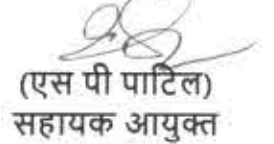 (एस पी पाटिल)
सहायक आयुक्त